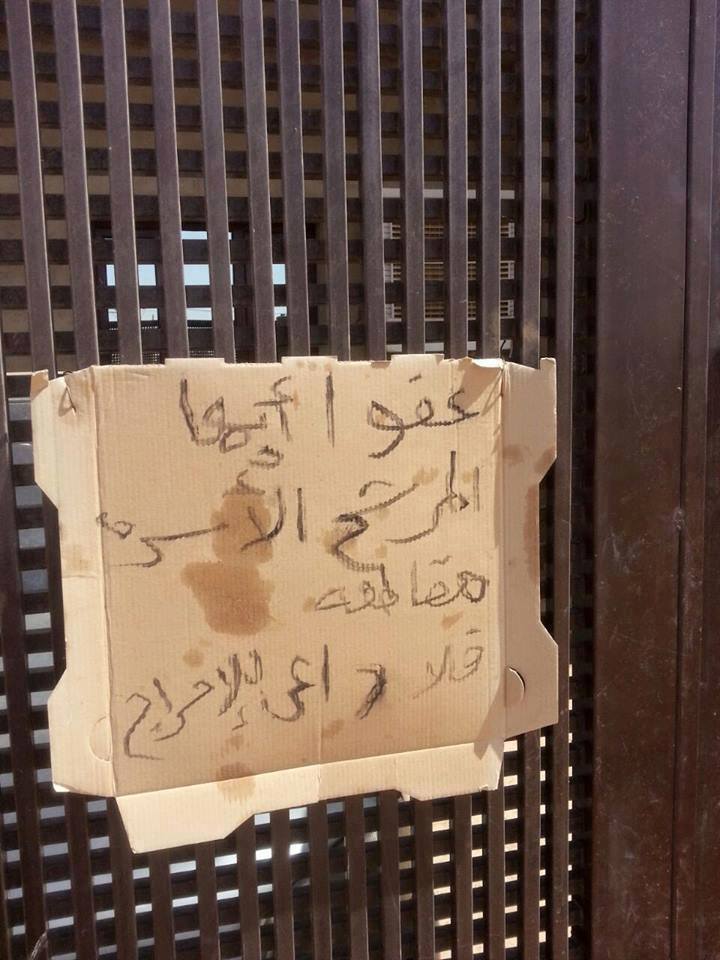 عفوا أيها
المرشح الأسرة
مقاطعه
فلا داعي للإحراج